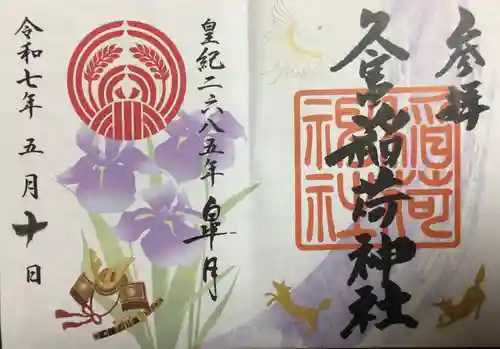 参拝
久富稲荷神社
稲荷
神社
皇紀二六八五年 皐月
令和七年 五月十日